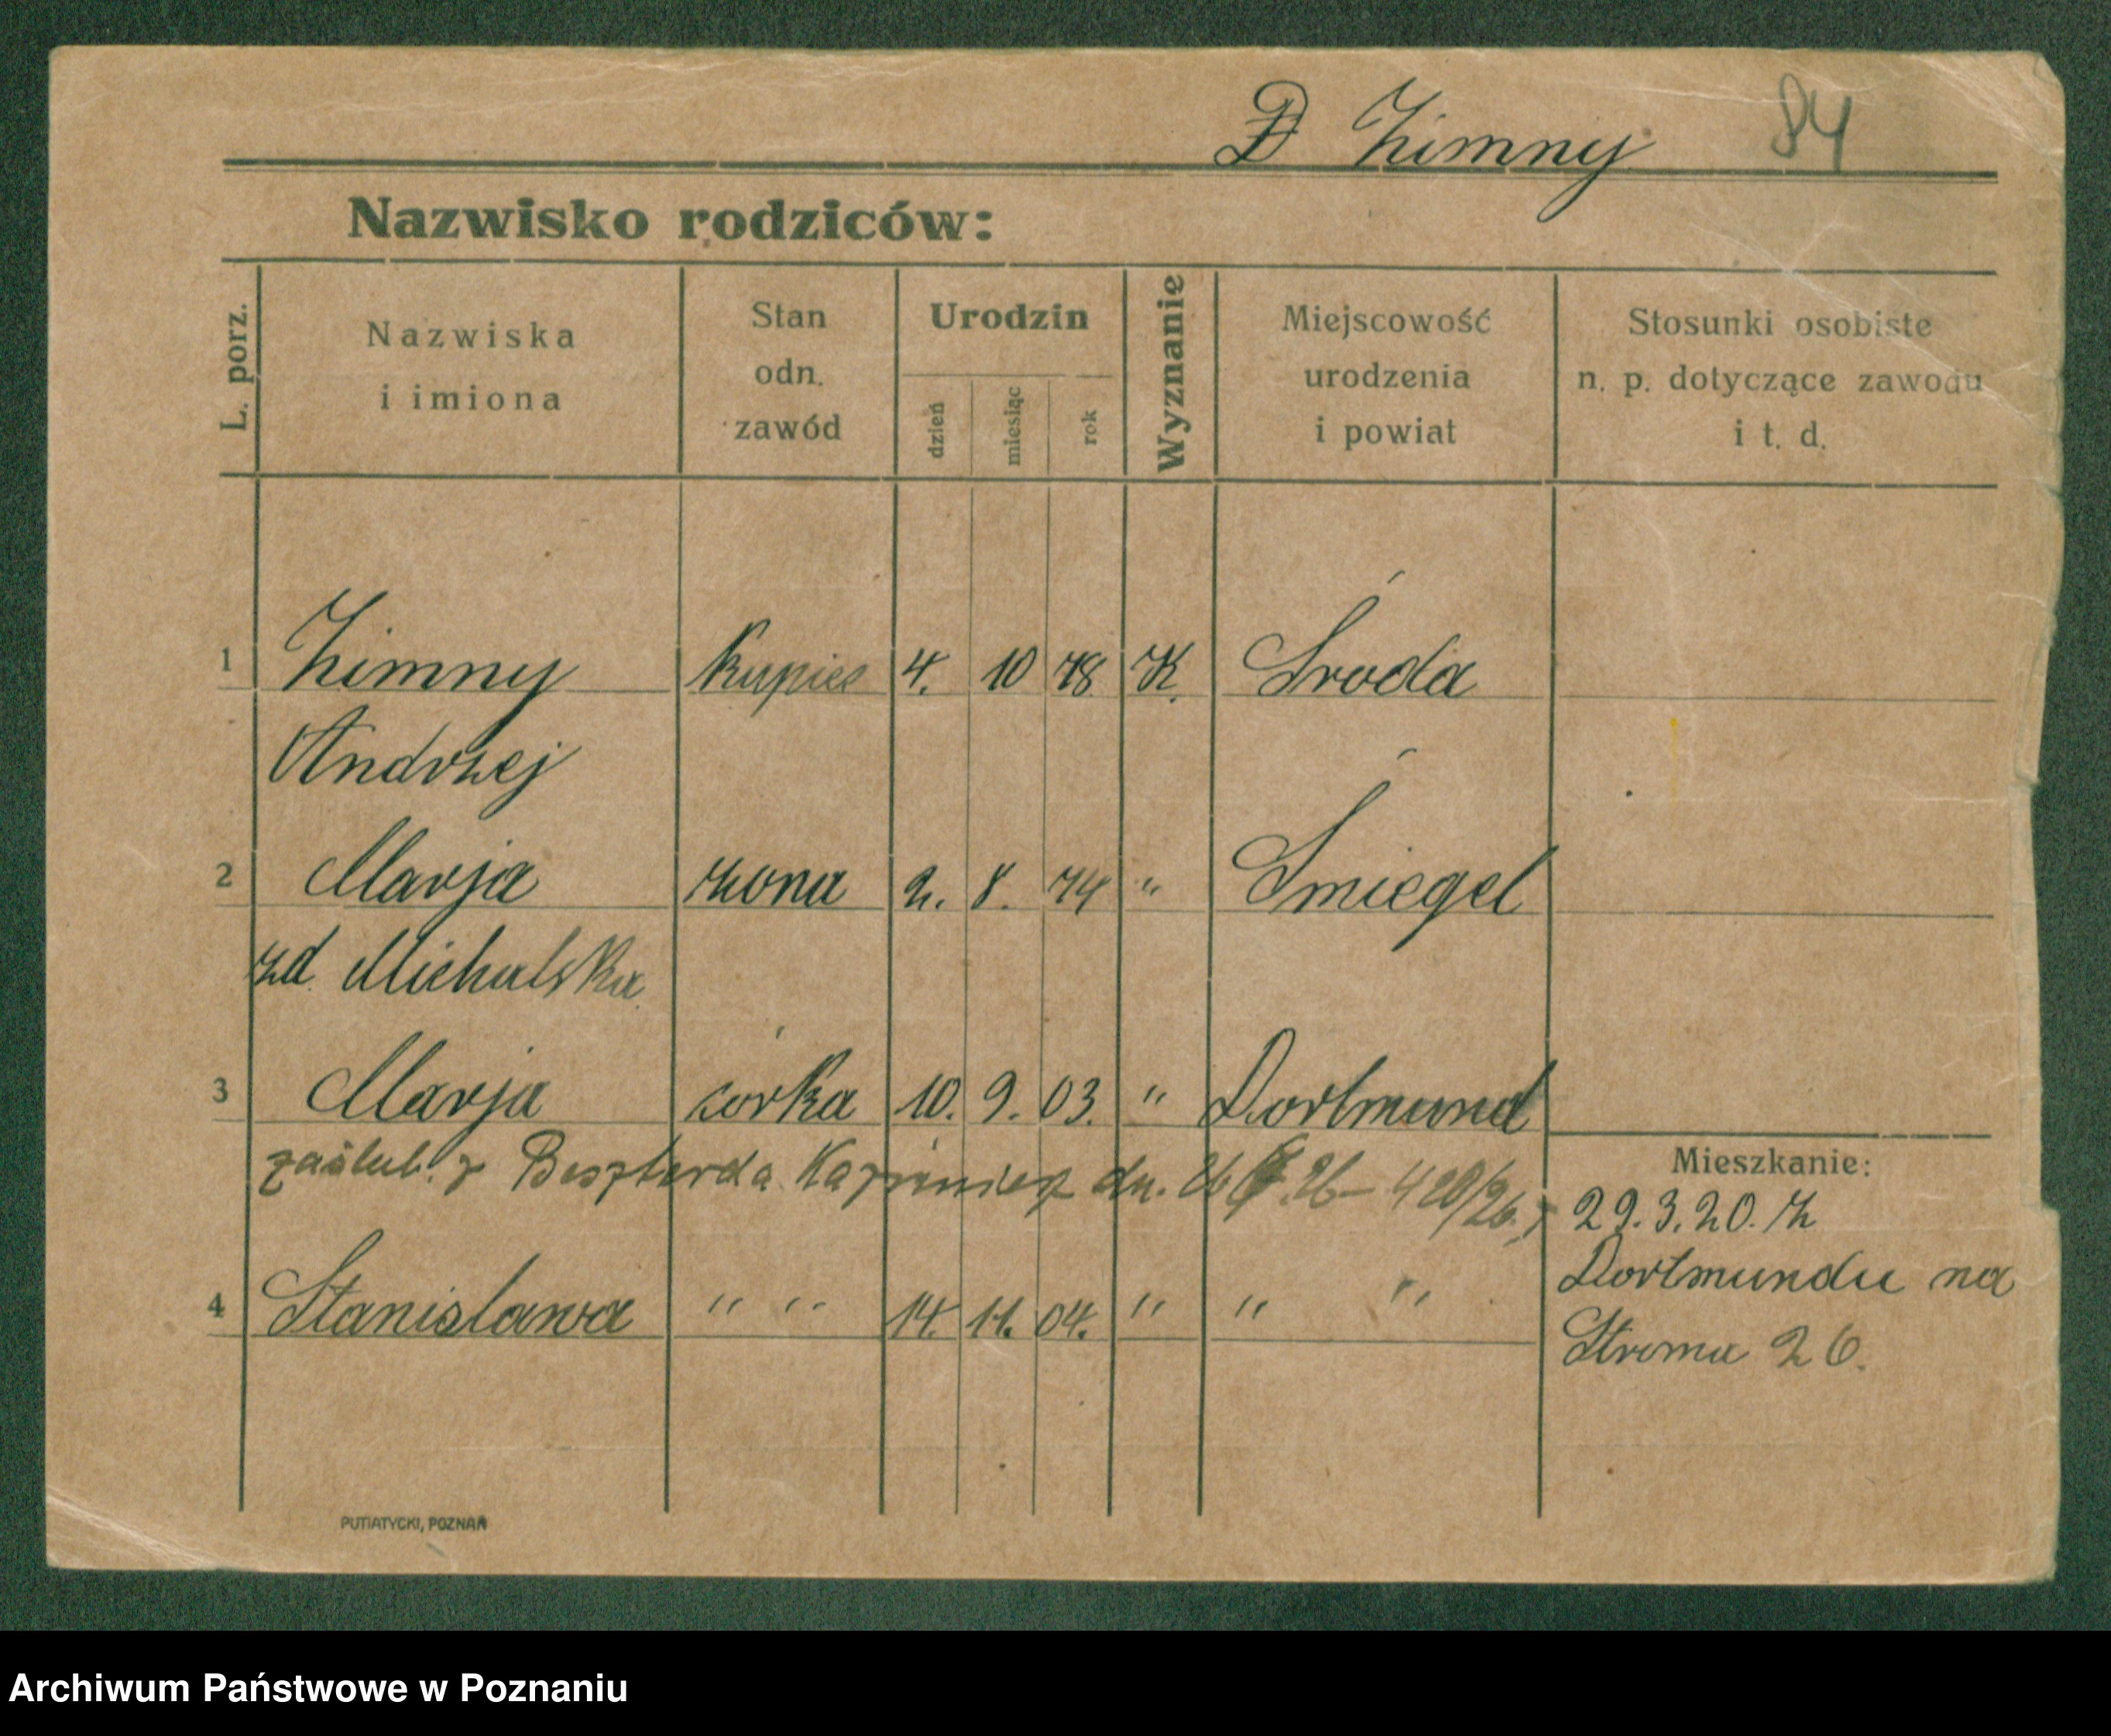 Zimny 84
Nazwisko rodziców:
L. porz.
Nazwiska
i imiona
Stan
odn.
zawód
Urodzin
dzień
miesiąc
rok
Wyznanie
Miejscowość
urodzenia
i powiat
Stosunki osobiste
n. p. dotyczące zawodu
i t. d.
1 Zimny kupiec 4. 10 78 K. Środa
Andrzej
2 Marja żona 2. 8. 74 " Śmiegel
zd. Michalska
3 Marja córka 10. 9. 03. " Dortmund
zaślub. z Beszterda Kazimierz dn. 26 26 – 420/26.
4 Stanisława " " 14. 11. 04. " " "
Mieszkanie:
29.3.20. z
Dortmundu na
Stroma 26.
PUTIATYCKI, POZNAŃ
Archiwum Państwowe w Poznaniu